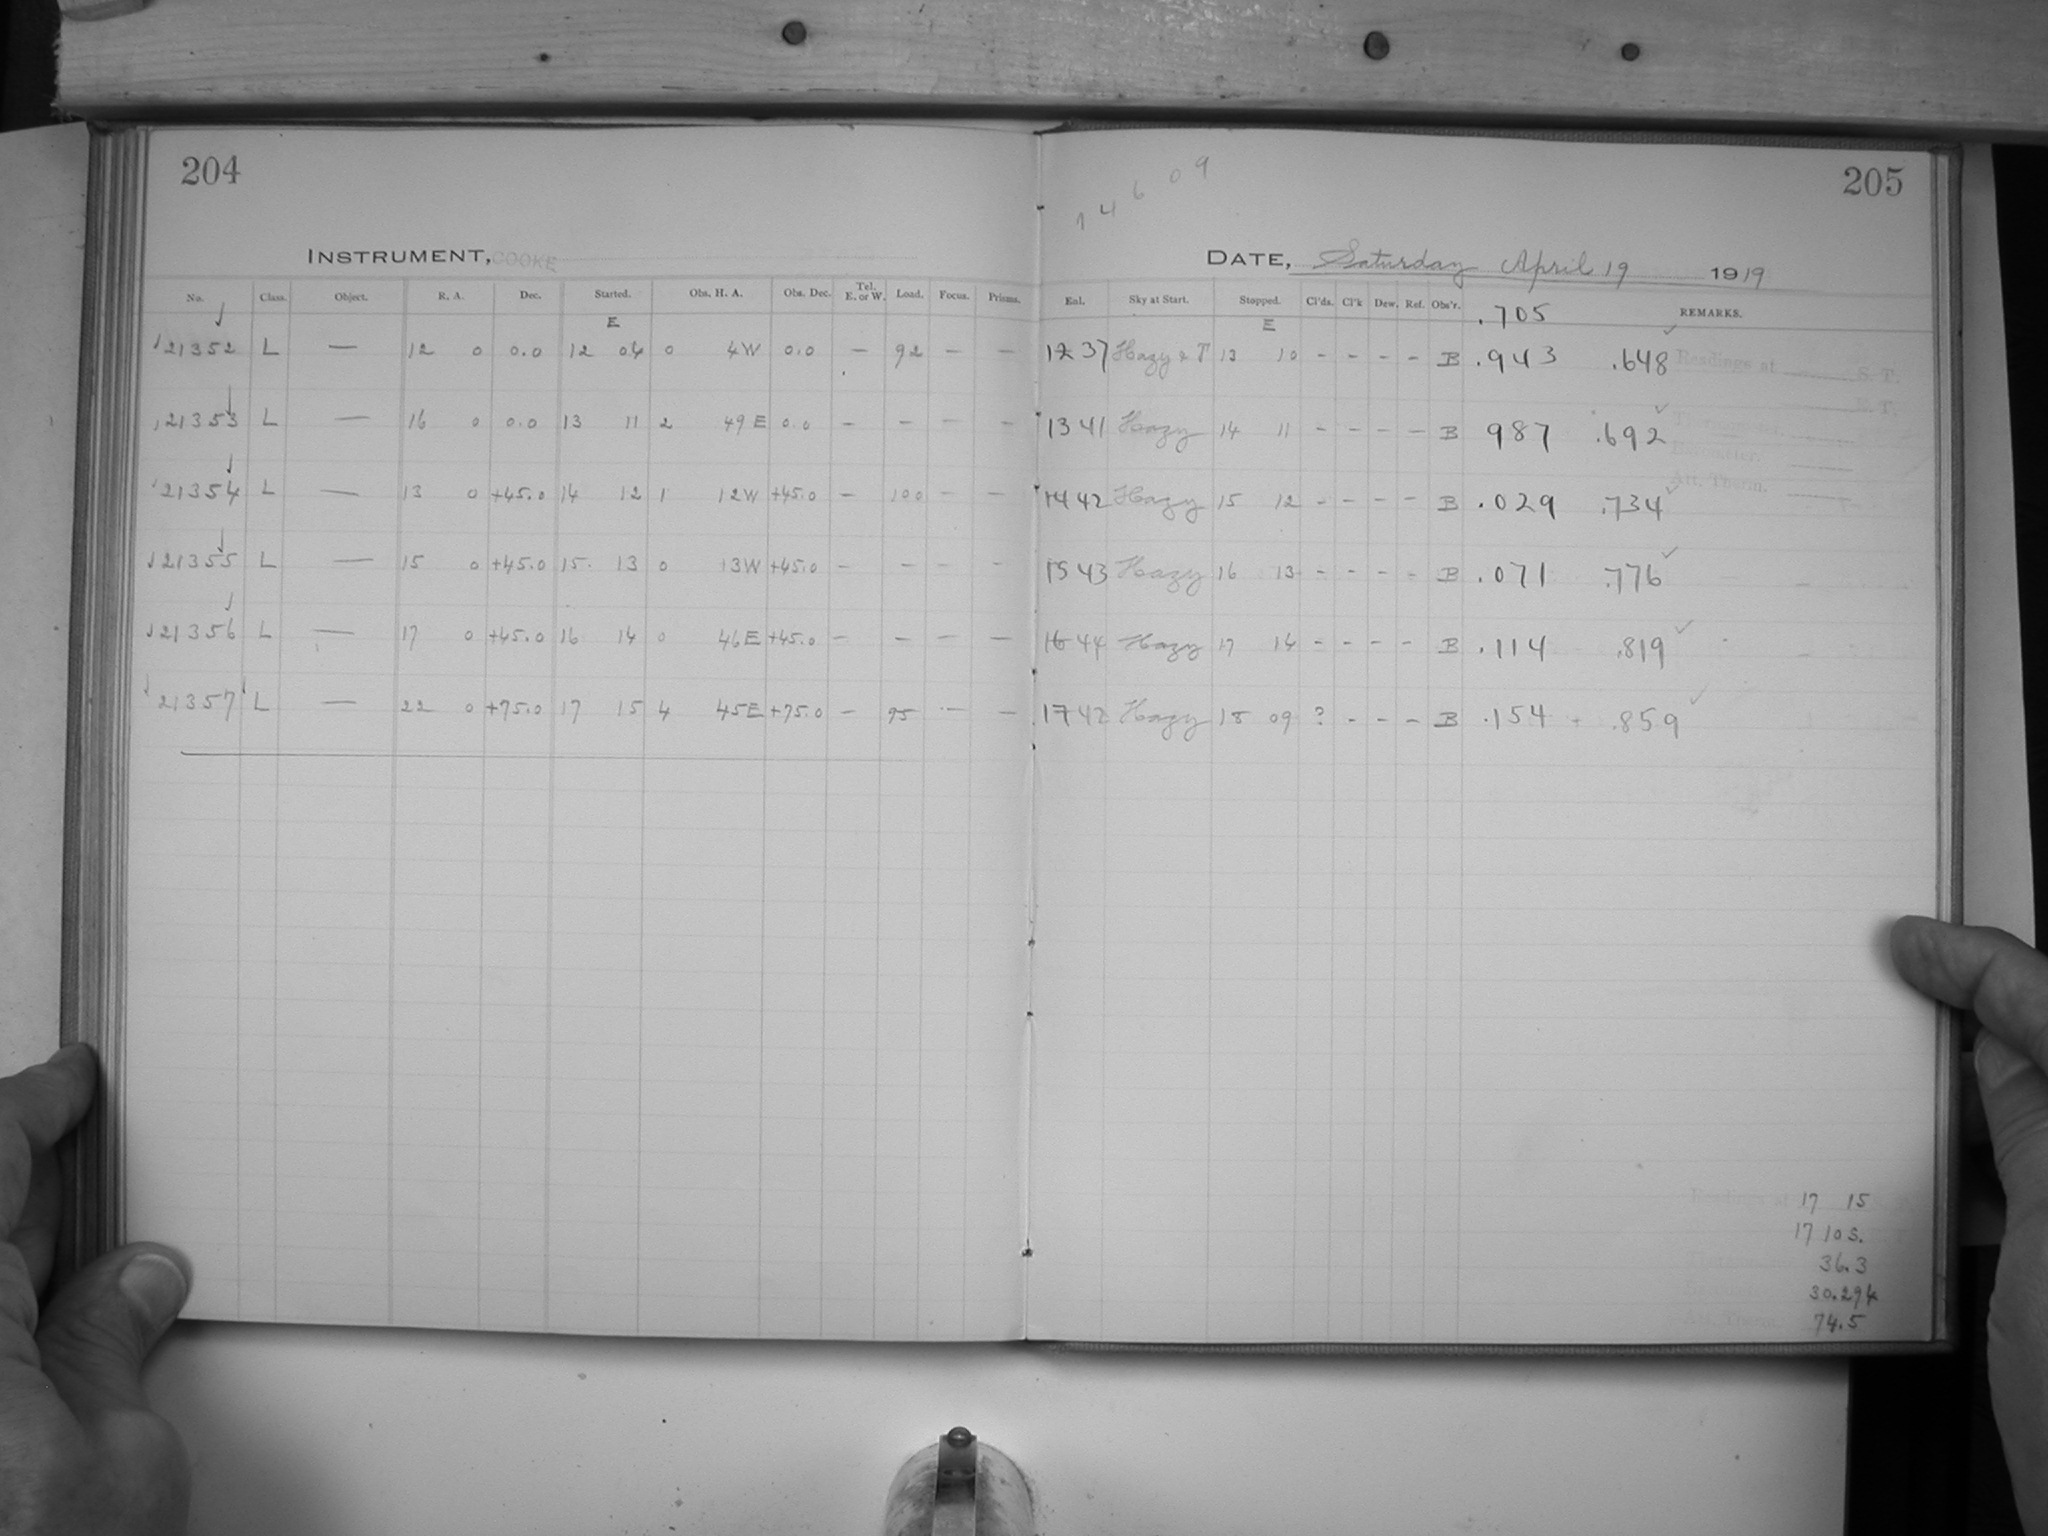 204
INSTRUMENT, COOKE
No. Class. Object. R. A. Dec. Started. Obs. H. A. Obs. Dec. Tel. E. or W. Load. Focus. Prisms.
E
21352 L — 12 0 0.0 12 04 0 4W 0.0 — 92 — —
21353 L — 16 0 0.0 13 11 2 49E 0.0 — — — —
21354 L — 13 0 +45.0 14 12 1 12W +45.0 — 100 — —
21355 L — 15 0 +45.0 15 13 0 13W +45.0 — — — —
21356 L — 17 0 +45.0 16 14 0 46E +45.0 — — — —
21357 L — 22 0 +75.0 17 15 4 45E +75.0 — 95 — —
14609
205
DATE, Saturday April 19 1919
Enl. Sky at Start. Stopped. Cl'ds. Cl'k Dew. Ref. Obs'r. .705 REMARKS.
E
12 37 Hazy & T 13 10 - - - - B .943 .648 Readings at S. T.
E. T.
13 41 Hazy 14 11 - - - - B 987 .692
14 42 Hazy 15 12 - - - - B .029 .734 Att. Therm.
15 43 Hazy 16 13 - - - - B .071 .776
16 44 Hazy 17 14 - - - - B .114 .819
17 42 Hazy 18 09 ? - - - B .154 .859
Readings at 17 15
17 10 S.
36.3
30.294
74.5